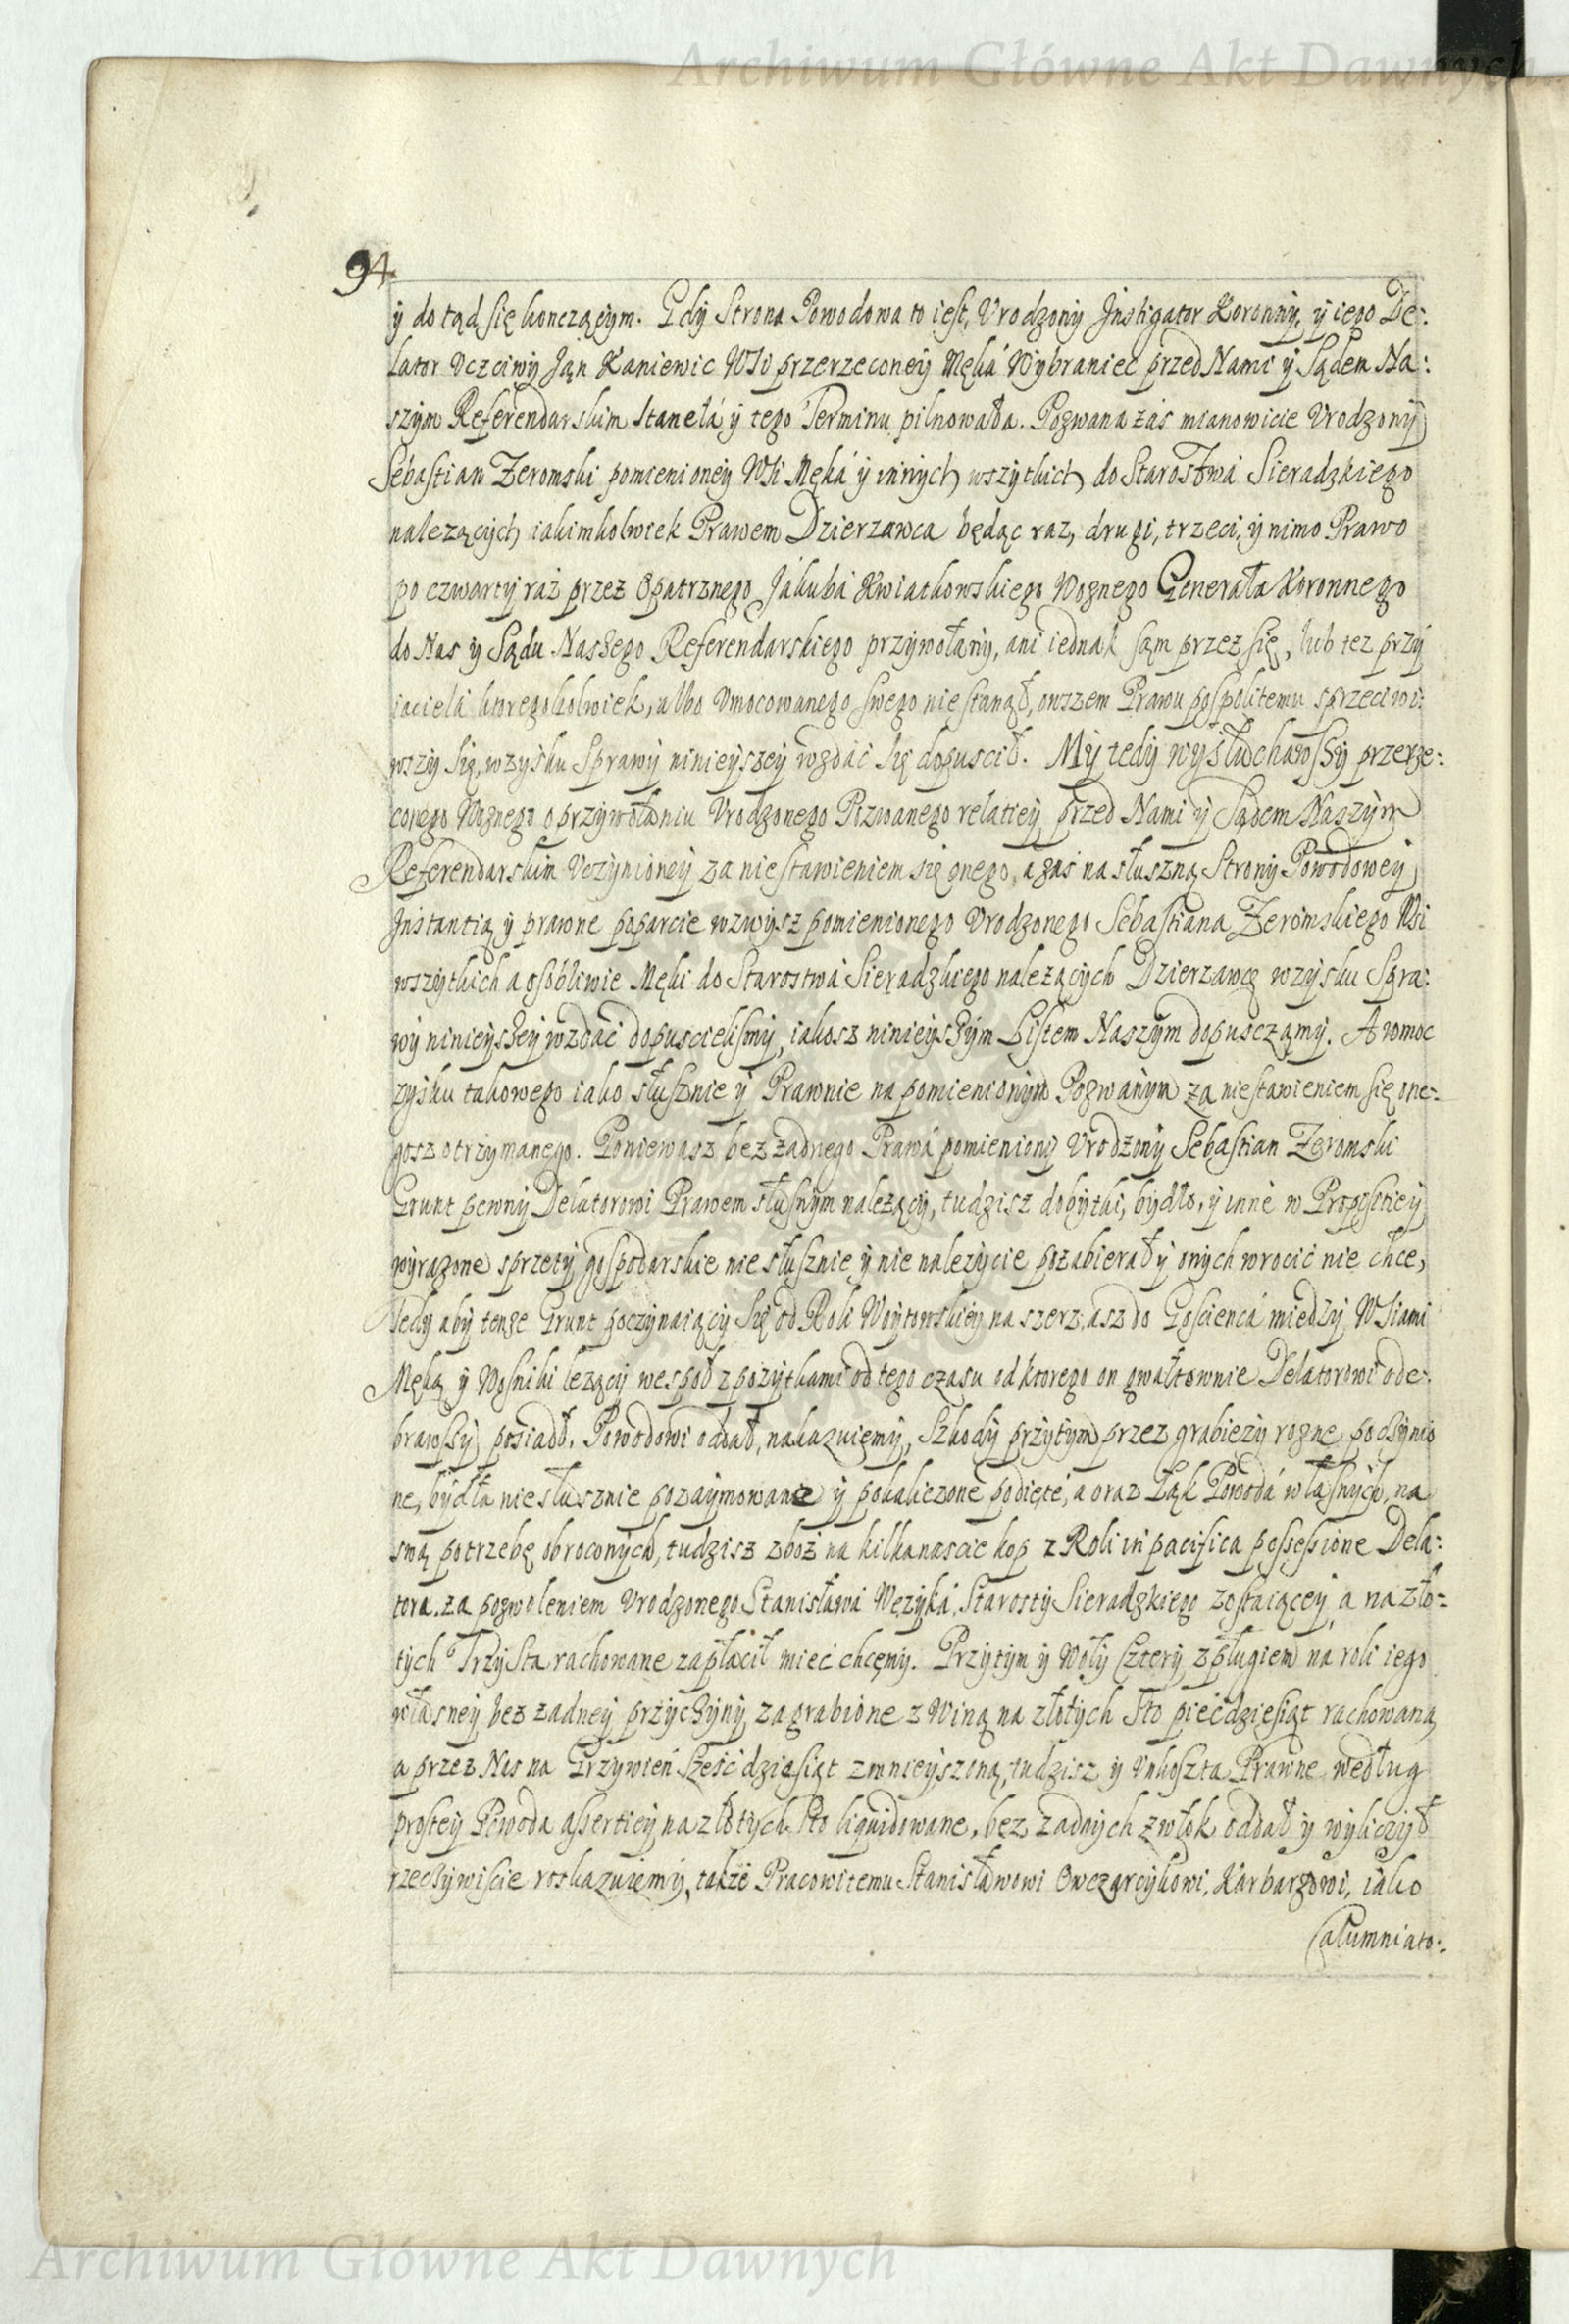 Archiwum Główne Akt Dawnych
94
ÿ do tąd się konczącym. Gdÿ Strona Powodowa to iest, Vrodzonÿ Jnstigator Koronnÿ, ÿ iego De:
lator Vczciwÿ Ján Kaniewic WSi przerzeconeÿ Męká Wÿbraniec przed Nami ÿ Sądem Na:
szÿm Referendarskim stanęłá ÿ tego Terminu pilnowała. Pozwana zás mianowicie Vrodzonÿ
Sebastian Zeromski pomienioneÿ WSi Męká ÿ innÿch wszÿtkich do Starostwá Sieradzkiego
nalezącÿch iakimkolwiek Prawem Dzierzawca będąc raz, drugi, trzeci, ÿ nimo Prawo
po czwartÿ raz przez Opatrznego Jákubá Kwiatkowskiego Woznego Generała Koronnego
do Nas ÿ Sądu Naszego Referendarskiego przÿwołanÿ, ani iednak sąm przez się, lub tez przÿ
iacielá ktoregokolwiek, albo Vmocowanego swego nie stanął, owszem Prawu pospolitemu sprzeciwi:
wszÿ się, wzÿsku Sprawÿ ninieÿszeÿ wzdáć się dopuscił. Mÿ tedÿ wÿsłuchawszÿ przerze:
conego Woznego o przÿwołaniu Vrodzonego Pozwanego relatieÿ przed Nami ÿ Sądem Naszÿm
Referendarskim Vczÿnioneÿ za nie stawieniem się onego, a zás na słuszną Stronÿ Powodoweÿ
Jnstantią ÿ prawne poparcie wzwÿsz pomienionego Vrodzonego Sebastiana Zeromskiego WSi
wszÿtkich a osobliwie Męki do Starostwá Sieradzkiego nalezącÿch Dzierzawcę wzÿsku Spra:
wÿ ninieÿszeÿ wzdać dopuscielismÿ, iakosz ninieÿszÿm Listem Naszÿm dopusczámÿ. A w moc
zÿsku takowego iako słusznie ÿ Prawnie na pomienionÿm Pozwanÿm za nie stawieniem się one-
gosz otrzÿmanego. Poniewasz bez zadnego Prawá pomienionÿ Vrodzonÿ Sebastian Zeromski
Grunt pewnÿ Delatorowi Prawem słusnÿm nalezącÿ, tudzisz dobÿtki, bÿdło, ÿ inne w Propositieÿ
wÿrazone sprzetÿ gospodarskie nie słusznie ÿ nie nalezÿcie pozabierał ÿ onÿch wrocić nie chce,
Tedÿ abÿ tenze Grunt poczÿnaiącÿ się od Roli Woÿtowskieÿ na szerz, asz do Goscieńcá miedzÿ WSiami
Męką ÿ Wosniki lezącÿ wespoł z pozÿtkami od tego czasu od ktorego on gwałtownie Delatorowi ode:
brawszÿ posiadł, Powodowi oddał, nakazuiemÿ, Szkodÿ przÿtÿm przez grabiezÿ rozne poczÿnio
ne, bÿdła nie słusznie pozaÿmowane ÿ pokaliczone podięte, a oraz Łąk Powodá własnÿch, na
swą potrzebę obroconÿch, tudzisz zboz na kilkanascie kop z Roli in pacifica possessione Dela:
tora. za pozwoleniem Vrodzonego Stanisława Węzÿká, Starostÿ Sieradzkiego zostaiąceÿ, a na zło-
tÿch Trzÿsta rachowane zapłacił mieć chcemÿ. Przÿtÿm ÿ Wołÿ Czterÿ z pługiem na roli iego
własneÿ bez zadneÿ przÿczÿnÿ zagrabione z Winą na złotÿch Sto pięćdziesiąt rachowaną
a przez Nas na Grzÿwień Szesćdziesiąt zmnieÿszoną, tudzisz ÿ Vnkoszta Prawne według
prosteÿ Powoda assertieÿ na złotÿch Sto liquidowane, bez zadnÿch zwłok oddał ÿ wÿliczÿł
rzeczÿwiscie roskazuiemÿ, także Pracowitemu Stanisławowi Owczarcÿkowi, Karbarzowi, iako
Calumniato:
Archiwum Główne Akt Dawnych